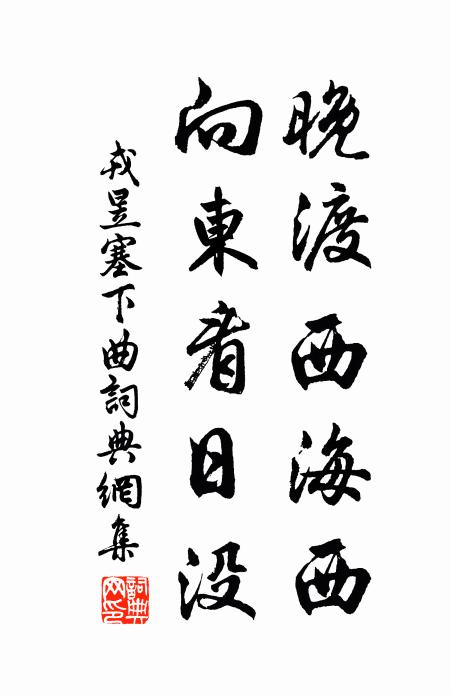 晚渡西海西
向東看日没
戎昱塞下曲詞典網集
詞典網印